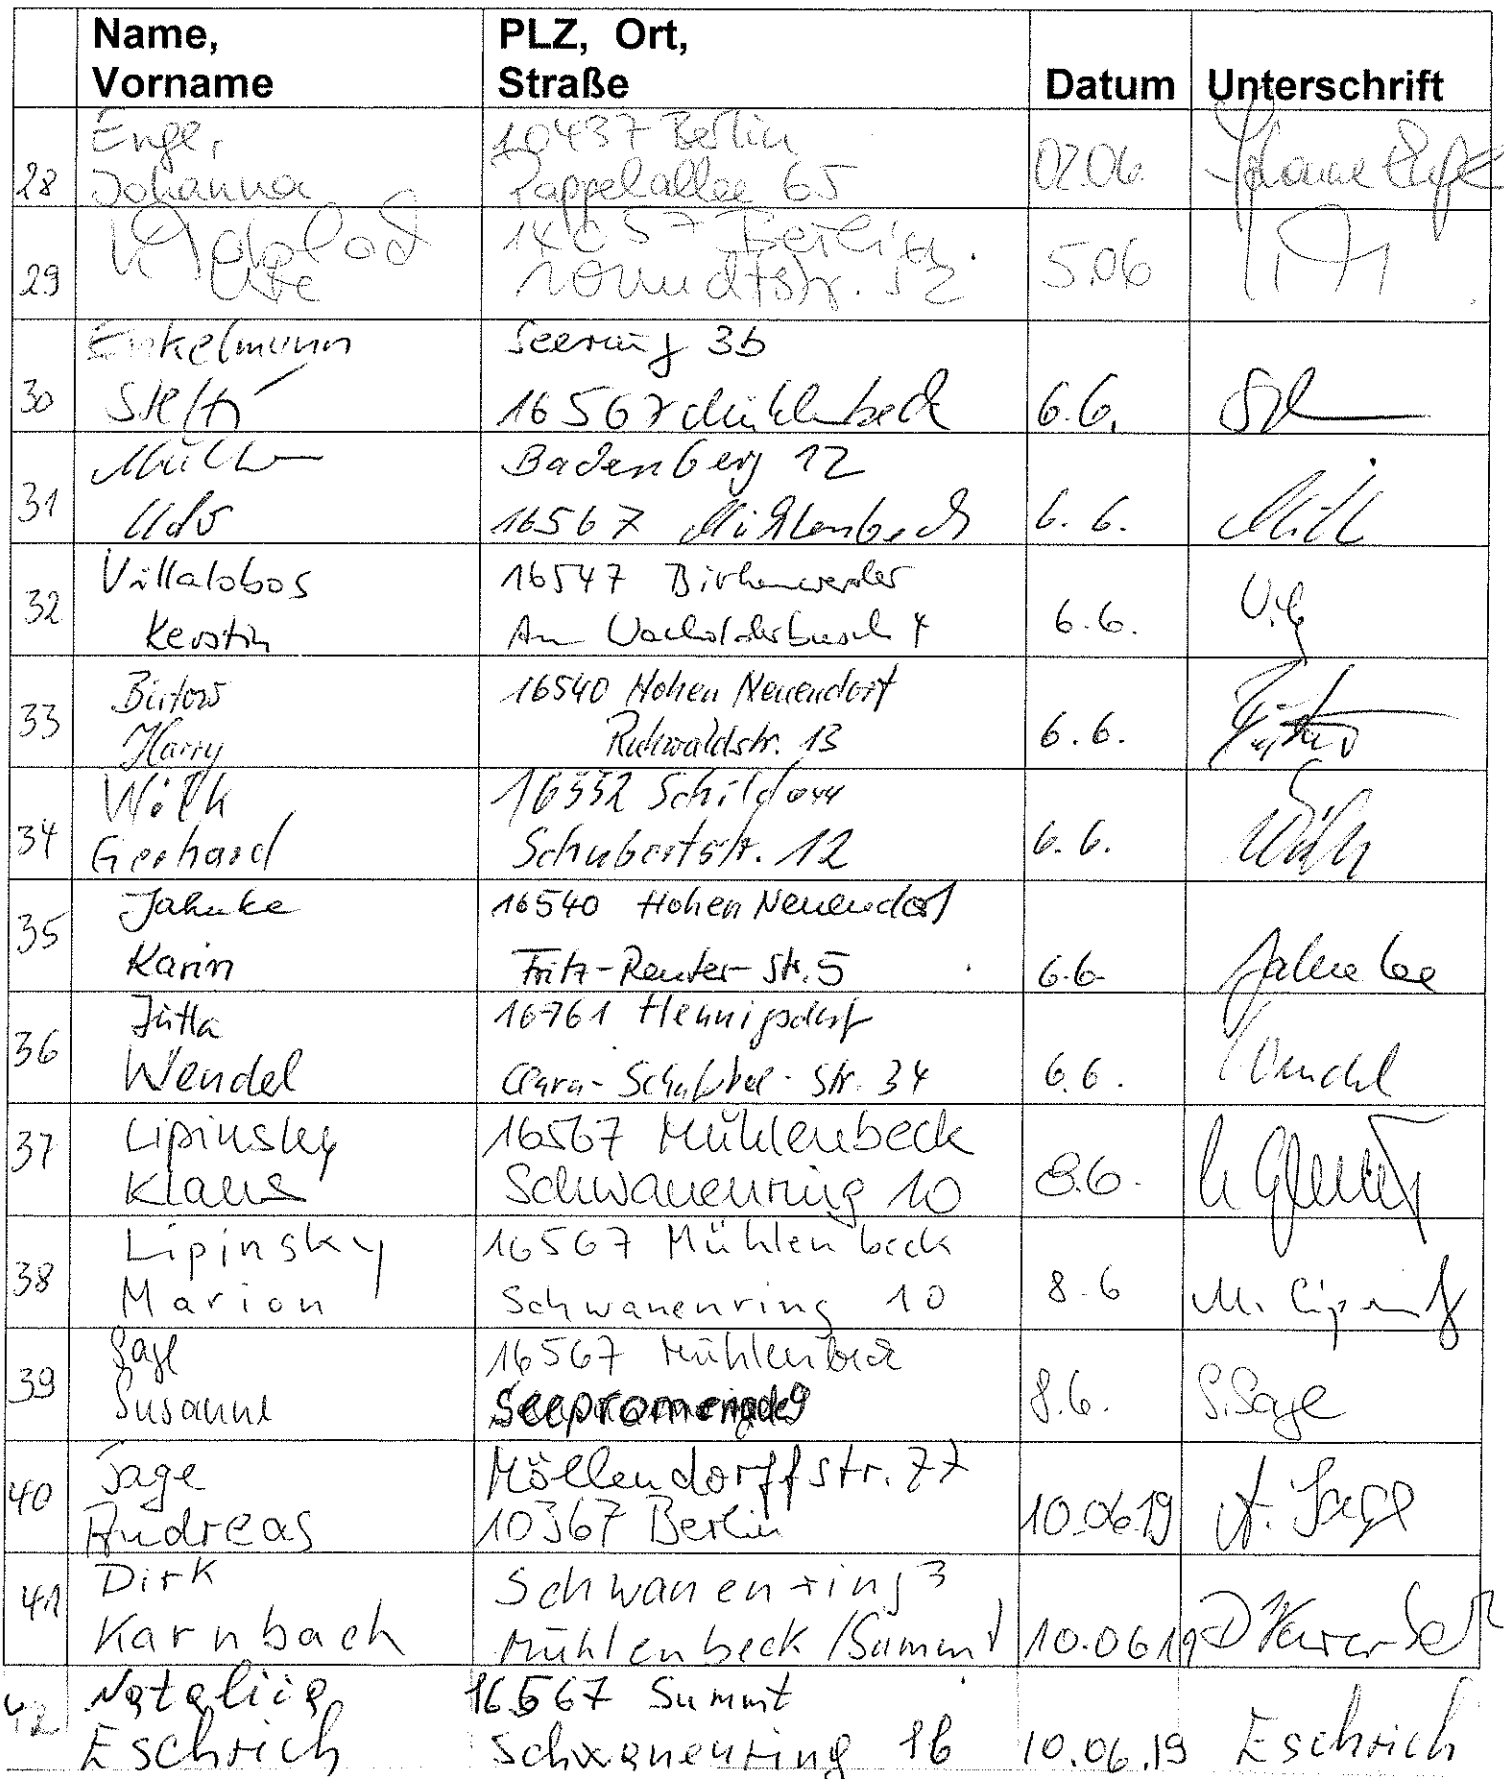 Name, Vorname PLZ, Ort, Straße Datum Unterschrift
28 Enge, Johanna 10437 Berlin Pappelallee 65 02.06.
29 Ute 14057 Berlin. 52 5.06
30 Enkelmann Steffi Seering 3b 16567 Mühlenbeck 6.6.
31 Müller Udo Badenberg 12 16567 Mühlenbeck 6.6.
32 Villalobos Kerstin 16547 Birkenwerder Am Wacholderbusch 4 6.6.
33 Harry 16540 Hohen Neuendorf Ruhwaldstr. 13 6.6.
34 Wilk Gerhard 16552 Schildow Schubertstr. 12 6.6.
35 Jahnke Karin 16540 Hohen Neuendorf Fritz-Reuter-Str. 5 6.6. Jahnke
36 Jutta Wendel 16761 Hennigsdorf Clara-Schabbel-Str. 34 6.6. Wendel
37 Lipinsky Klaus 16567 Mühlenbeck Schwanenring 10 8.6.
38 Lipinsky Marion 16567 Mühlenbeck Schwanenring 10 8.6 M. Lipinsky
39 Sage Susanne 16567 Mühlenbeck Seepromenade 9 8.6. S. Sage
40 Sage Andreas Möllendorffstr. 77 10367 Berlin 10.06.19 A. Sage
41 Dirk Karnbach Schwanenring 3 Mühlenbeck/Summt 10.06.19 D Karnbach
42 Nataliia Eschrich 16567 Summt Schwanenring 16 10.06.19 Eschrich